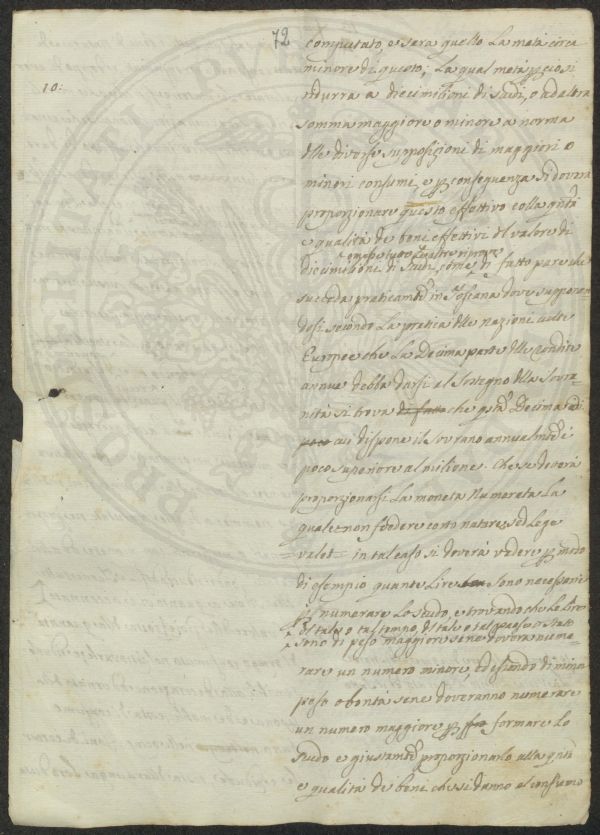 72
computato, e sarà quello la metà circa
10:
minore di questo; La qual metà p̱ciò si
ridurrà a diecimilioni di Scudi, o ad altra
somma maggiore o minore a norma
delle diverse supposizioni di maggiori o
minori consumi, e p̱ conseguenza si dovrà
proporzionare questo effettivo colla qñtà
e qualità de beni effettivi del valore di
diecimilioni di Scudi, come di fatto pare che
succeda praticamte in Toscana dove supponen
dosi secondo la pratica delle nazioni culte
Europee che la Decima parte delle rendite
annue debba darsi al Sostegno della Sovra
nità si trova di fatto che questa Decima di
cui dispone il Sovrano annualmte è
poco superiore al milione. Che se dovrà
proporzionarsi la moneta Numerata la
quale non fodere com natura, sed lege
valet = in tal caso si doverà vedere p̱ modo
di esempio quante Lire sono necessarie
p̱ numerare lo Scudo, e trovando che le Lire
di tale o tal tempo, di tale o tal paese o Stato
sono di peso maggiore se ne dovrà nume
rare un numero minore, ed essendo di minor
peso o bontà se ne doveranno numerare
un numero maggiore p̱ formare lo
Scudo e giustamte proporzionarlo alla qñtà
e qualità de beni che si danno al consumo